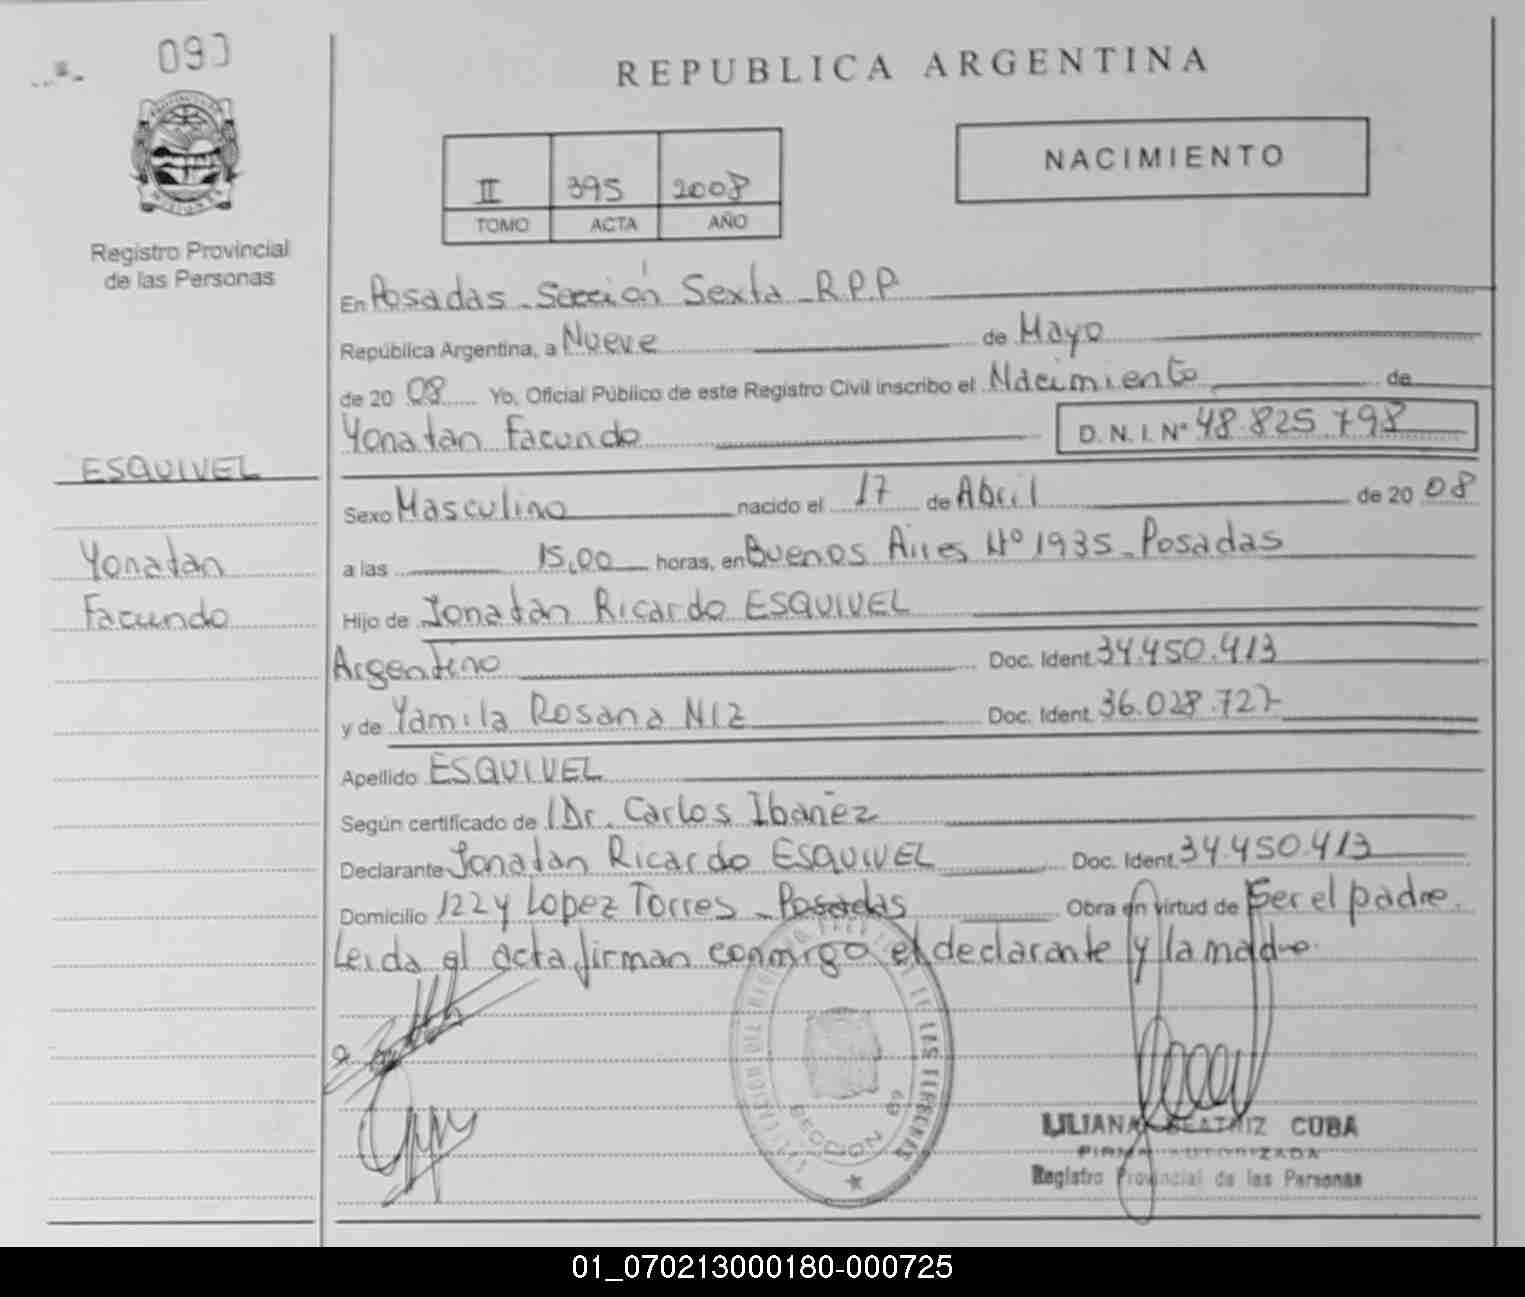 090
REPUBLICA ARGENTINA
NACIMIENTO
II 395 2008
TOMO ACTA AÑO
Registro Provincial
de las Personas
En Posadas - Sección Sexta - R.P.P
República Argentina, a Nueve de Mayo
de 20 08 Yo, Oficial Público de este Registro Civil inscribo el Nacimiento de
Yonatan Facundo D. N. I. Nº 48.825.798
ESQUIVEL
Yonatan
Facundo
Sexo Masculino nacido el 17 de Abril de 20 08
a las 15,00 horas, en Buenos Aires Nº 1935 - Posadas
Hijo de Jonatan Ricardo ESQUIVEL
Argentino Doc. Ident. 34.450.413
y de Yamila Rosana NIZ Doc. Ident. 36.028.727
Apellido ESQUIVEL
Según certificado de Dr. Carlos Ibañez
Declarante Jonatan Ricardo ESQUIVEL Doc. Ident. 34.450.413
Domicilio 122 y Lopez Torres - Posadas Obra en virtud de Ser el padre.
Leida el acta firman conmigo el declarante y la madre.
SECCION 6º
LILIANA BEATRIZ CUBA
FIRMA AUTORIZADA
Registro Provincial de las Personas
01_070213000180-000725